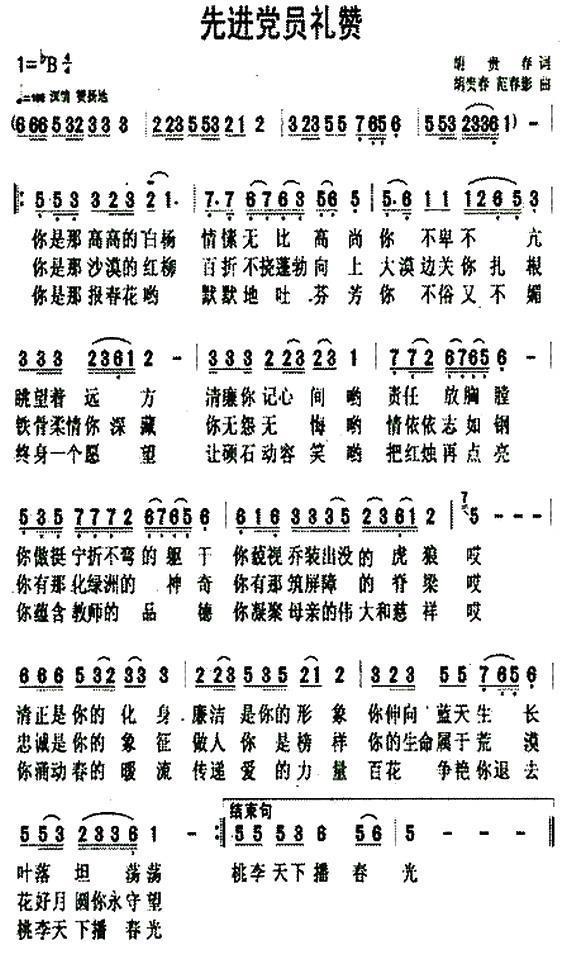 先进党员礼赞
1=♭B 4/4
胡贵春 词
胡贵春 范春影 曲
深情 赞扬地
(6 6 6 5 3 2 3 3 3 3 | 2 2 3 5 5 3 2 1 2 | 3 2 3 5 5 7 6 5 6 | 5 5 3 2 3 3 6 1) -
5 5 3 3 2 3 2 1. | 7. 7 6 7 6 3 5 6 5 | 5. 6 1 1 1 2 6 5 3
你是那高高的白杨 情愫无比高尚你 不卑不 亢
你是那沙漠的红柳 百折不挠蓬勃向上 大漠边关你扎根
你是那报春花哟 默默地吐芬芳你 不俗又不媚
3 3 3 2 3 6 1 2 - | 3 3 3 2 2 3 2 3 1 | 7 7 2 6 7 6 5 6 -
眺望着 远方 清廉你记心间哟 责任 放胸膛
铁骨柔情你深藏 你无怨无 悔哟 情依依志如钢
终身一个愿 望 让顽石动容笑哟 把红烛再点亮
5 3 5 7 7 7 2 6 7 6 5 6 | 6 1 6 3 3 3 5 2 3 6 1 2 | 7 5 - - -
你傲挺宁折不弯的躯干 你藐视乔装出没的虎狼哎
你有那化绿洲的 神奇 你有那筑屏障的脊梁哎
你蕴含教师的品 德 你凝聚母亲的伟大和慈祥哎
6 6 6 5 3 2 3 3 3 | 2 2 3 5 3 5 2 1 2 | 3 2 3 5 5 7 6 5 6
清正是你的化身 廉洁是你的形象 你伸向蓝天生长
忠诚是你的象征 做人你是榜样 你的生命属于荒漠
你涌动春的暖流 传递爱的力量 百花 争艳你退去
5 5 3 2 3 3 6 1 - | 结束句 5 5 5 3 6 5 6 | 5 - - -
叶落坦荡荡 桃李天下播春光
花好月圆你永守望
桃李天下播春光